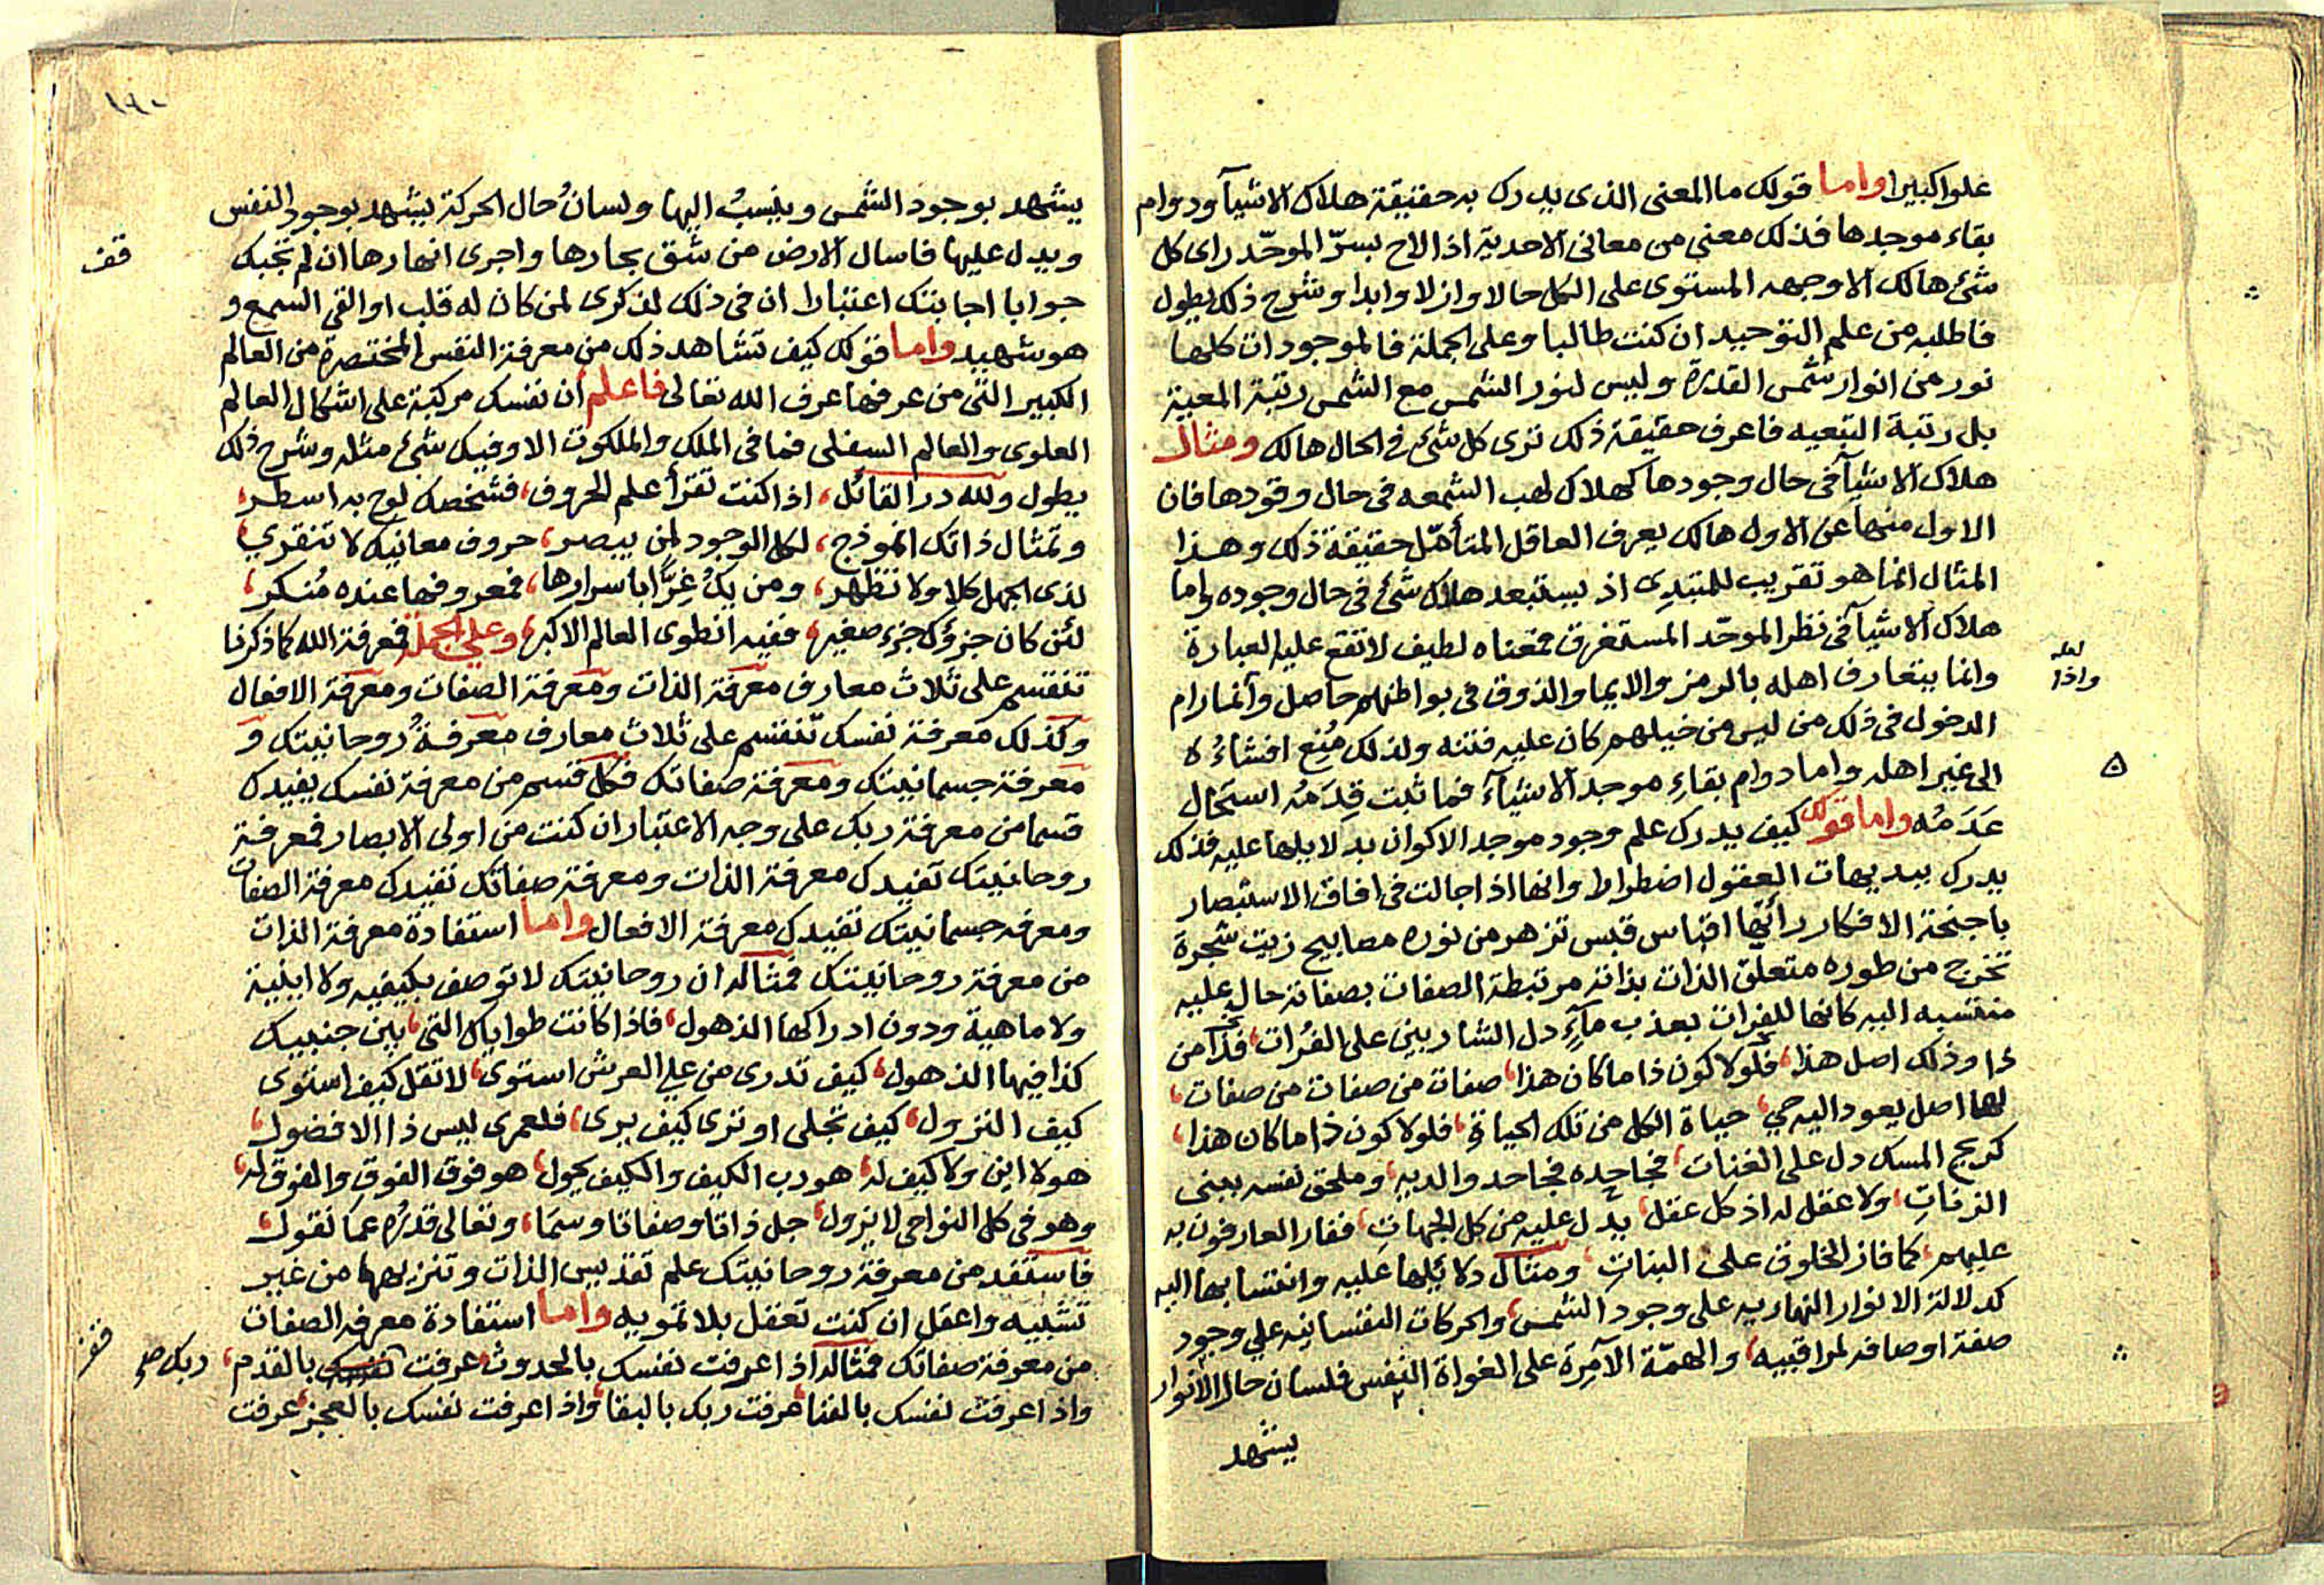 علوا كبيرا واما قولك ما المعنى الذى يدرك به حقيقة هلاك الاشيآ ودوام
بقاء موجدها فذلك معنى من معانى الاحدية اذا لاح لسرّ الموحّد راى كل
شئ هالك الا وجهه المستوى على الكل حالا وازلا وابدا وشرح ذلك يطول
فاطلبه من علم التوحيد ان كنت طالبا وعلى الجملة فالموجودات كلها
نور من انوار شمس القدرة وليس لنور الشمس مع الشمس رتبة المعية
بل رتبة التبعيه فاعرف حقيقة ذلك ترى كل شئ فى الحال هالك ومثال
هلاك الاشيآ فى حال وجودها كهلاك لهب الشمعه فى حال وقودها فان
الاول منها عن الاول هالك يعرف العاقل المتأمّل حقيقة ذلك وهذا
المثال انما هو تقريب للمبتدى اذ يستبعد هلاك شئ فى حال وجوده واما
هلاك الاشيآ فى نظر الموحّد المستغرق فمعناه لطيف لا تقع عليه العبارة
وانما يتعارف اهله بالرمز والايما والذوق فى بواطنهم حاصل وانما رام
لعله
واذا
الدخول فى ذلك من ليس من خيلهم كان عليه فتنه ولذلك مُنِع افشاءُه
الى غير اهله واما دوام بقاءِ موجد الاشيآء فما ثبت قِدَمُه استحال
عَدَمُه واما قولك كيف يدرك علم وجود موجد الاكوان بدلايلها عليه فذلك
يدرك ببديهات العقول اضطرارا وانها اذا جالت فى افاق الاستبصار
باجنحة الافكار رأتها اقباس قبس تزهر من نوره مصابيح زيت شجرة
تخرج من طوره متعلق الذات بذاته مرتبطة الصفات بصفاته حال عليه
منتسبه اليه كانها للفرات بعذب مآءٍ دل الشاربين على الفُرات، فذا من
ذا وذلك اصل هذا، فلولا كون ذا ما كان هذا، صفات من صفات من صفات،
لها اصل يعود اليه حي، حياة الكل من تلك الحياة، فلولا كون ذا ما كان هذا،
كريح المسك دل على الغنات، فجاحده فجاحد والديه، وملحق نفسه ببنى
الزناتِ، ولا عقل له اذ كل عقل، يدل عليه من كل الجهاتِ، ففار العارفون به
عليهم، كما فاز الخلوق على البناتِ، ومثال دلائلها عليه وانتسابها اليه
كدلالة الانوار النهاريه على وجود الشمس، والحركات النفسانيه على وجود
صفة اوصافه لمراقبيه، والهمّة الآمِرة على الغواة النفس فلسان حال الانوار
يشهد
١٩٠
يشهد بوجود الشمس وينسبُ اليها ولسانُ حال الحركة يشهد بوجود النفس
ويدل عليها فاسال الارض من شق بحارها واجرى انهارها ان لم تجبك
قف
جوابا اجابتك اعتبارا ان فى ذلك لذكرى لمن كان له قلب او القى السمع و
هو شهيد واما قولك كيف تشاهد ذلك من معرفة النفس المختصرة من العالم
الكبير التى من عرفها عرف الله تعالى فاعلم ان نفسك مركبة على اشكال العالم
العلوى والعالم السفلى فما فى الملك والملكوت الا وفيك شئ مثله وشرح ذلك
يطول ولله در القائل، اذا كنت تقرأ علم الحروف، فشخصك لوح به اسطر،
وتمثال ذاتك انموذج، لكل الوجود لمن يبصر، حروف معانيك لا تنقري،
لذى الجهل كلا ولا تظهر، ومن يك غِرًّا باسرارها، فمعروفها عنده مُنكر،
لئن كان جزؤك جزء صغير، ففيه انطوى العالم الاكبر، وعلى الجملة فمعرفة الله كما ذكرنا
تنقسم على ثلاث معارف معرفة الذات ومعرفة الصفات ومعرفة الافعال
وكذلك معرفة نفسك تنقسم على ثلاث معارف معرفةُ روحانيتك و
معرفة جسمانيتك ومعرفة صفاتك فكل قسم من معرفة نفسك يفيدك
قسما من معرفة ربك على وجه الاعتبار ان كنت من اولى الابصار فمعرفة
روحانيتك تفيدك معرفة الذات ومعرفة صفاتك تفيدك معرفة الصفات
ومعرفه جسمانيتك تفيدك معرفة الافعال واما استفادة معرفة الذات
من معرفة روحانيتك فمثاله ان روحانيتك لا توصف بكيفيه ولا اينية
ولا ماهية ودون ادراكها الذهول، فاذا كانت طواياك التى، بين جنبيك
كذا فيها الذهول، كيف تدرى من على العرش استوى، لا تقل كيف استوى
كيف النزول، كيف تجلى او ترى كيف يرى، فلعمرى ليس ذا الا فضول،
هو لا اين ولا كيف له، هو رب الكيف والكيف يحول، هو فوق الفوقِ والفوق له،
وهو فى كل النواحى لا يزول، جل ذاتا وصفاتا وسمَا، وتعالى قدرُه عما نقول،
فاستفد من معرفة روحانيتك علم تقديس الذات وتنزيهها من غير
تشبيه واعقل ان كنت تعقل بلا تمويه واما استفادة معرفه الصفات
قف
من معرفة صفاتك فمثاله اذا عرفت نفسك بالحدوث، عرفت نفسك بالقدم،
ربك صح
واذا عرفت نفسك بالفنا، عرفت ربك بالبقا، واذا عرفت نفسك بالعجز، عرفت